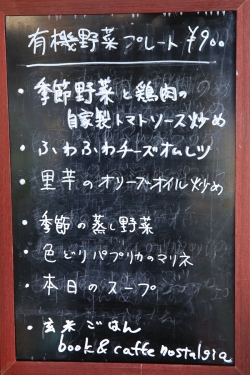 有機野菜プレート ¥900
• 季節野菜と鶏肉の
自家製トマトソース炒め
• ふわふわチーズオムレツ
• 里芋のオリーブオイル炒め
• 季節の蒸し野菜
• 色どりパプリカのマリネ
• 本日のスープ
• 玄米ごはん
book & caffe nostalgia